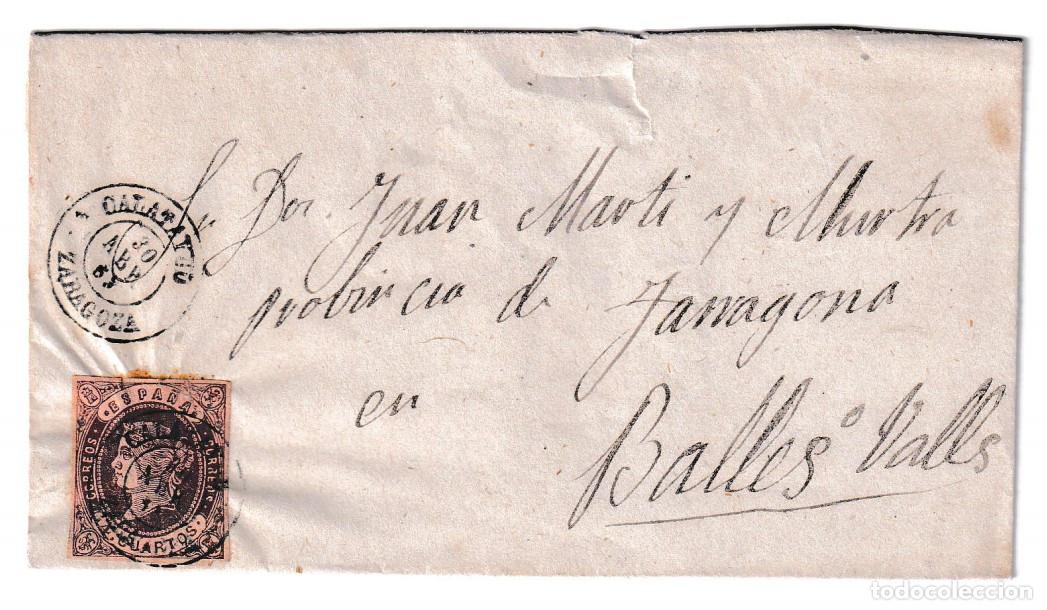 Sr Dn. Juan Marti y Murtra
probincia de Tarragona
en
Balles o Valls
CALATAYUD
30
ABR
63
ZARAGOZA
ESPAÑA
CORREOS. CORREOS
CUARTOS.
todocoleccion